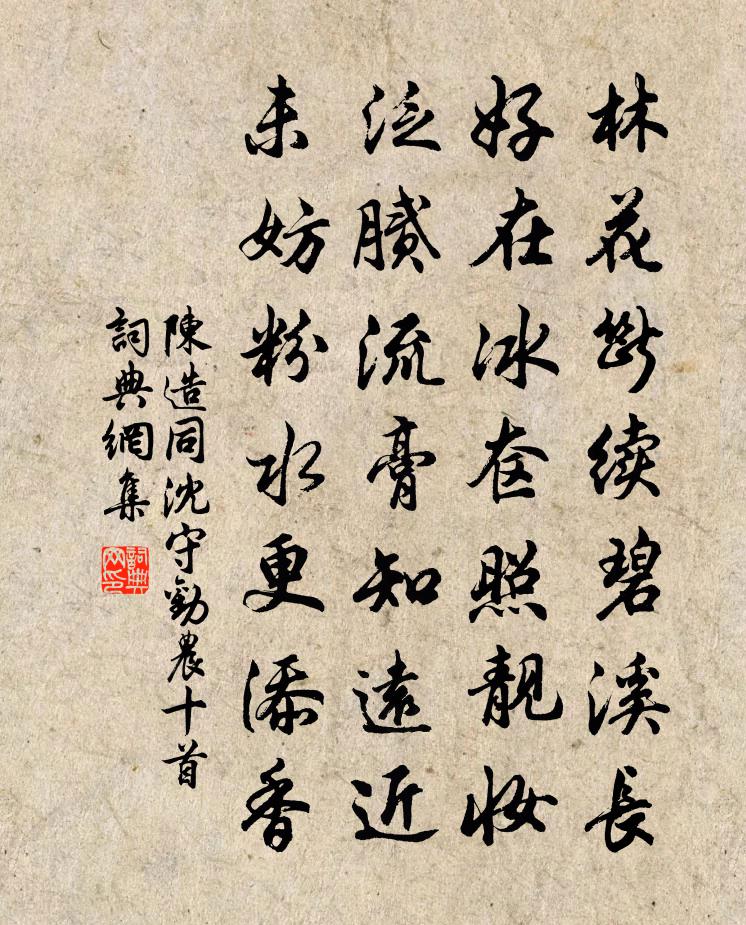 林花断续碧溪長
好在冰奁照靓妆
泛腻流膏知遠近
未妨粉水更添香
陳造同沈守勸農十首
詞典網集
詞典网印